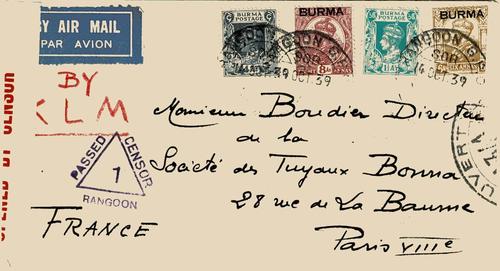 BY AIR MAIL
PAR AVION
BURMA
POSTAGE
BURMA
BURMA
POSTAGE
BURMA
RANGOON G.P.O.
14 OCT 39
BY
KLM
OPENED BY CENSOR
PASSED
CENSOR
1
RANGOON
Monsieur Boudier Directeur
de la
Société des Tuyaux Bonna
28 rue de La Baume
Paris VIIIe
FRANCE
OUVERT